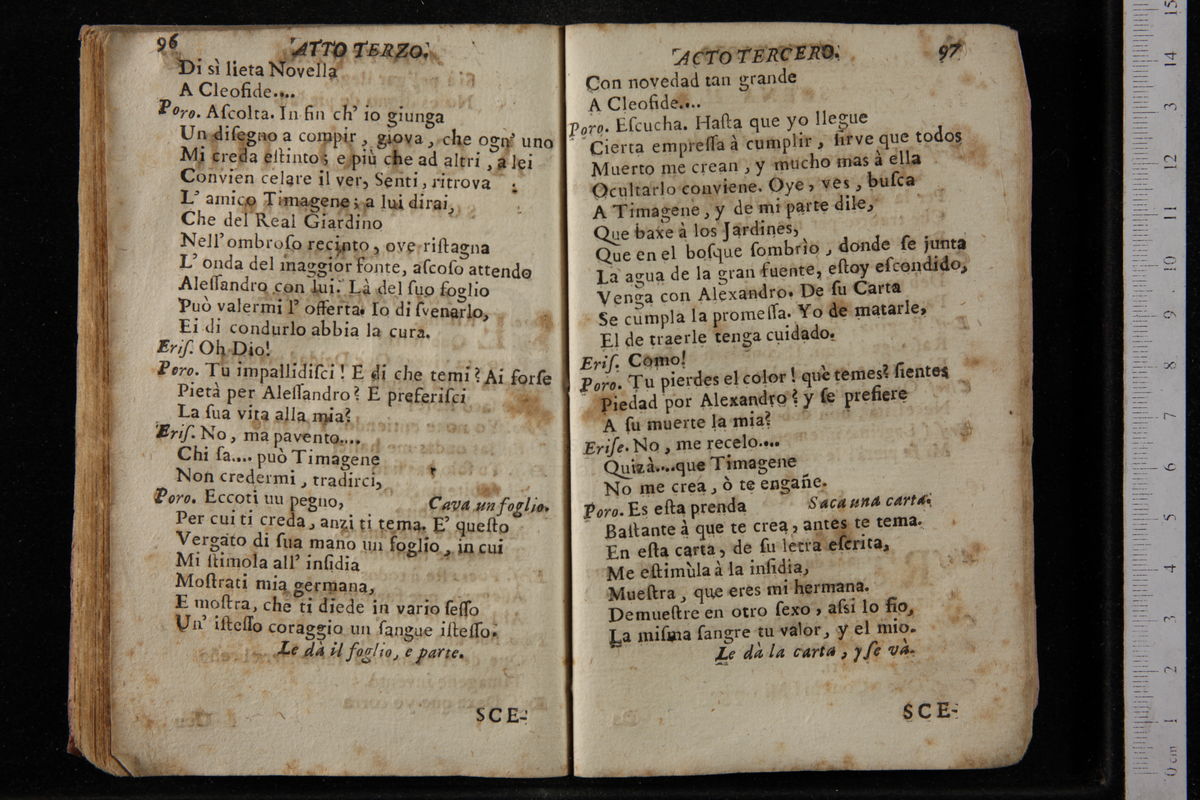 96
ATTO TERZO.
Di sì lieta Novella
A Cleofide....
Poro. Aſcolta. In fin ch' io giunga
Un diſegno a compir, giova, che ogn' uno
Mi creda eſtinto; e più che ad altri, a lei
Convien celare il ver, Senti, ritrova
L' amico Timagene; a lui dirai,
Che del Real Giardino
Nell' ombroſo recinto, ove riſtagna
L' onda del maggior fonte, aſcoſo attendo
Aleſſandro con lui. Là del ſuo foglio
Può valermi l' offerta. Io di ſvenarlo,
Ei di condurlo abbia la cura.
Eriſ. Oh Dio!
Poro. Tu impallidiſci! E di che temi? Ai forſe
Pietà per Aleſſandro? E preferiſci
La ſua vita alla mia?
Eriſ. No, ma pavento....
Chi ſa.... può Timagene
Non credermi, tradirci,
Poro. Eccoti uu pegno, Cava un foglio.
Per cui ti creda, anzi ti tema. E' queſto
Vergato di ſua mano un foglio, in cui
Mi ſtimola all' inſidia
Moſtrati mia germana,
E moſtra, che ti diede in vario ſeſſo
Un' iſteſſo coraggio un ſangue iſteſſo.
Le dà il foglio, e parte.
SCE-
ACTO TERCERO.
97
Con novedad tan grande
A Cleofide....
Poro. Eſcucha. Haſta que yo llegue
Cierta empreſſa à cumplir, ſirve que todos
Muerto me crean, y mucho mas à ella
Ocultarlo conviene. Oye, ves, buſca
A Timagene, y de mi parte dile,
Que baxe à los Jardines,
Que en el boſque ſombrìo, donde ſe junta
La agua de la gran fuente, eſtoy eſcondido,
Venga con Alexandro. De ſu Carta
Se cumpla la promeſſa. Yo de matarle,
El de traerle tenga cuidado.
Eriſ. Como!
Poro. Tu pierdes el color! què temes? ſientes
Piedad por Alexandro? y ſe prefiere
A ſu muerte la mia?
Eriſe. No, me recelo....
Quizà....que Timagene
No me crea, ò te engañe.
Poro. Es eſta prenda Saca una carta.
Baſtante à que te crea, antes te tema.
En eſta carta, de ſu letra eſcrita,
Me eſtimùla à la inſidia,
Mueſtra, que eres mi hermana.
Demueſtre en otro ſexo, aſsi lo fio,
La miſma ſangre tu valor, y el mio.
Le dà la carta, y ſe và.
SCE-